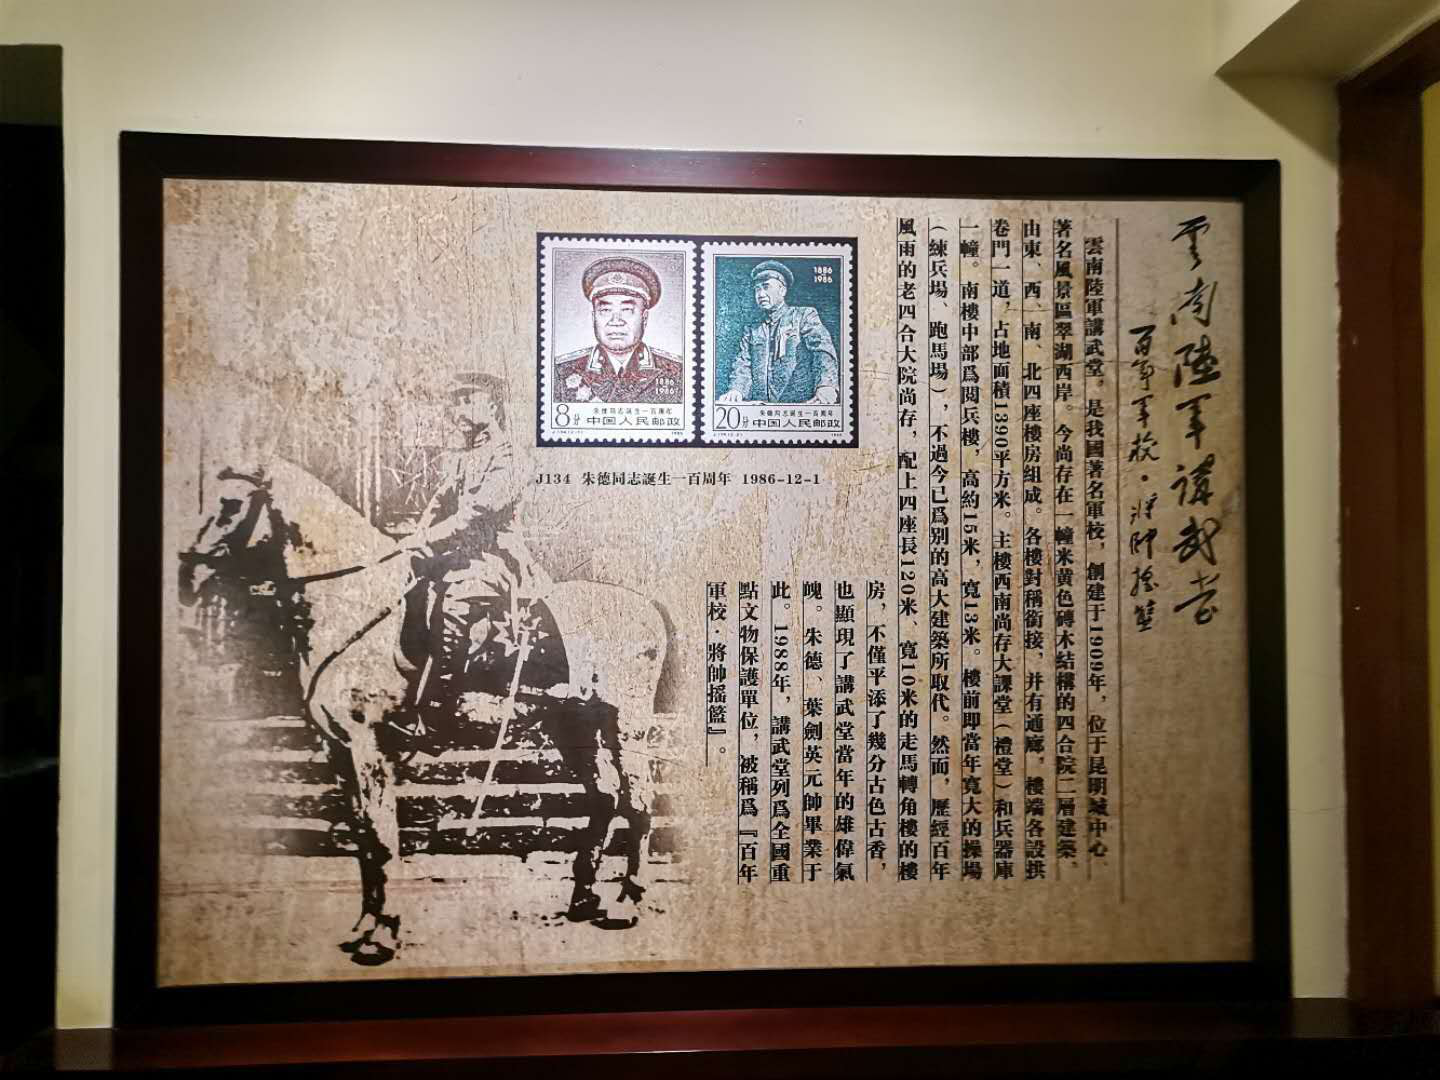 雲南陸軍講武堂
百年軍校·將帥搖籃
雲南陸軍講武堂，是我國著名軍校，創建于1909年，位于昆明城中心、
著名風景區翠湖西岸。今尚存在一幢米黄色磚木結構的四合院二層建築，
由東、西、南、北四座樓房組成。各樓對稱銜接，并有通廊，樓端各設拱
卷門一道，占地面積1390平方米。主樓西南尚存大課堂（禮堂）和兵器庫
一幢。南樓中部爲閱兵樓，高約15米，寬13米。樓前即當年寬大的操場
（練兵場、跑馬場），不過今已爲别的高大建築所取代。然而，歷經百年
風雨的老四合大院尚存，配上四座長120米、寬10米的走馬轉角樓的樓
房，不僅平添了幾分古色古香，
也顯現了講武堂當年的雄偉氣
魄。朱德、葉劍英元帥畢業于
此。1988年，講武堂列爲全國重
點文物保護單位，被稱爲『百年
軍校·將帥摇籃』。
1886
1986
8分
朱德同志誕生一百周年
中国人民邮政
J.134.(2-1)
1986
1886
1986
20分
朱德同志誕生一百周年
中国人民邮政
J.134.(2-2)
1986
J134 朱德同志誕生一百周年 1986-12-1